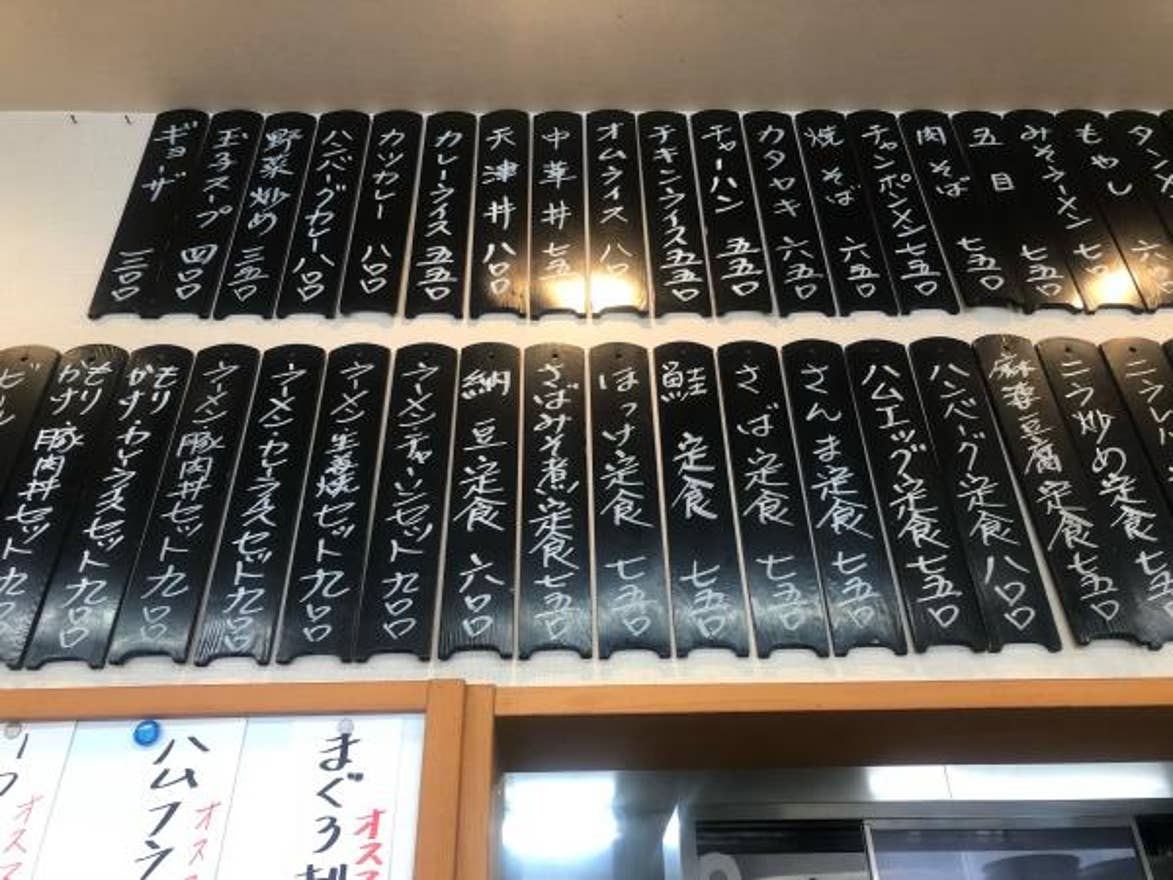 タンメ
もやし 七五〇
みそラーメン 七五〇
五目 七五〇
肉そば 七五〇
チャンポンメン 七五〇
焼そば 六五〇
カタヤキ 六五〇
チャーハン 五五〇
チキンライス 五五〇
オムライス 八〇
中華丼 七五〇
天津丼 八〇〇
カレーライス 五五〇
カツカレー 八〇〇
ハンバーグカレー 八〇〇
野菜炒め 三五〇
玉子スープ 四〇〇
ギョーザ 三〇〇
ニラレバ
ニラ炒め定食 七五〇
麻婆豆腐定食 七五〇
ハンバーグ定食 八〇〇
ハムエッグ定食 七五〇
さんま定食 七五〇
さば定食 七五〇
鮭定食 七五〇
ほっけ定食 七五〇
さばみそ煮定食 七五〇
納豆定食 六〇〇
ラーメン・チャーハンセット 九〇〇
ラーメン生姜焼セット 九〇〇
ラーメン・カレーライスセット 九〇〇
ラーメン豚肉丼セット 九〇〇
もりかけ・カレーライスセット 九〇〇
もりかけ 豚肉丼セット 九〇〇
まぐろ刺
オスス
ハムフラ
オスス
オスス